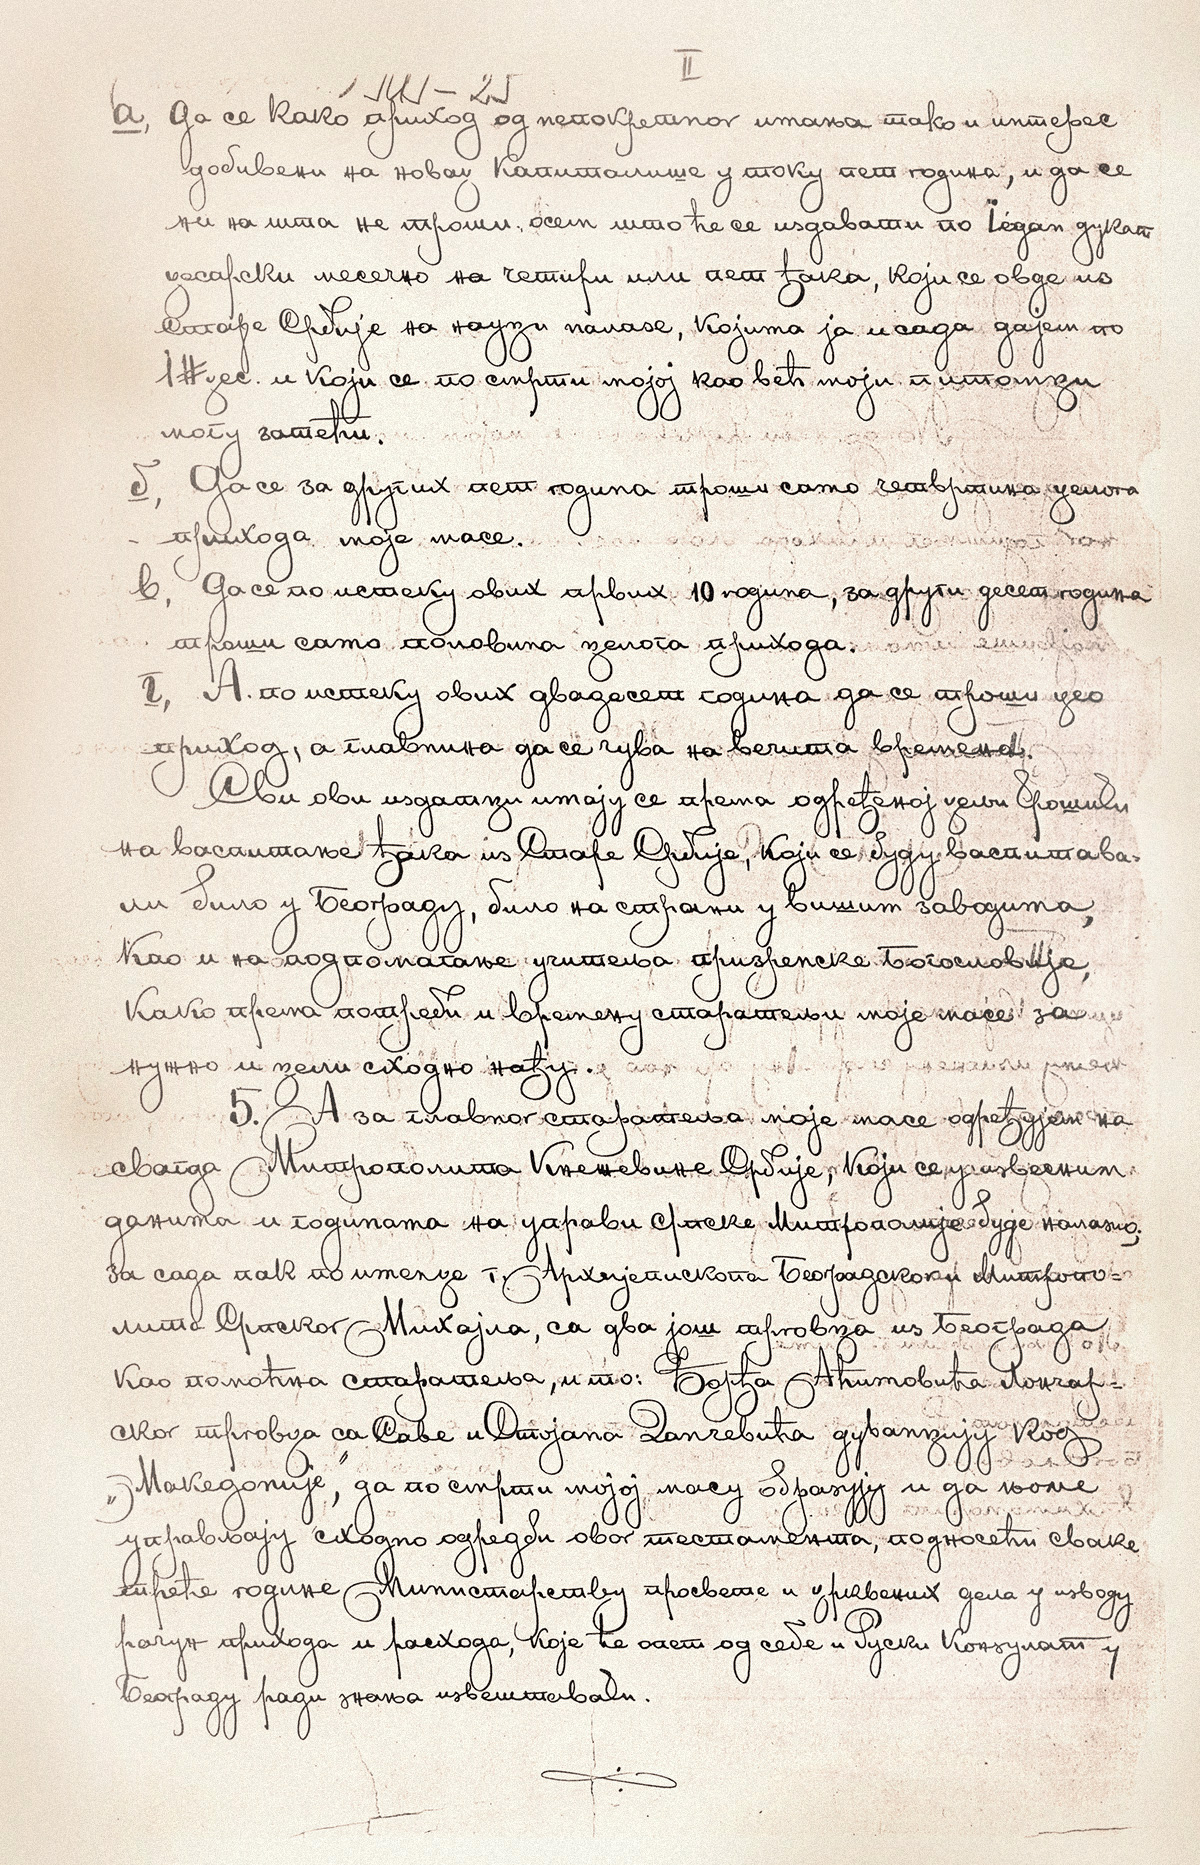 II
а, Да се како приход од непокретног имања тако и интерес
добивени на новац капиталише у току пет година, и да се
ни на шта не троши, осем што ће се издавати по један дукат
цесарски месечно на четири или пет ђака, који се овде из
Старе Србије на науци налазе, којима ја и сада дајем по
1# цес. и који се по смрти мојој као већ моји питомци
могу затећи.
б, Да се за других пет година троши само четвртина целога
прихода моје масе.
в, Да се по истеку ових првих 10 година, за други десет година
троши само половина целога прихода.
г, А по истеку ових двадесет година да се троши цео
приход, а главнина да се чува на вечита времена.
Сви ови издатци имају се према одређеној цељи трошити
на васпитање ђака из Старе Србије, који се буду васпитава-
ли било у Београду, било на страни у вишим заводима,
као и на подпомагање учитеља призренске Богословије,
како према потреби и времену старатељи моје масе за
нужно и цели сходно нађу.
5. А за главног старатеља моје масе одређујем на
свагда Митрополита Кнежевине Србије, који се у извесним
данима и годинама на управи Српске Митрополије буде налазио;
за сада пак по имену г. Архијепископа Београдског и Митропо=
лита Српског Михајла, са два још трговца из Београда
као помоћна старатеља, и то: Ђорђа Аћимовића лончар=
ског трговца са Саве и Стојана Данчевића дуванџију код
„Македоније", да по смрти мојој масу образују и да њоме
управљају сходно одредби овог тестамента, подносећи сваке
треће године Министарству просвете и црквених дела у изводу
рачун прихода и расхода, које ће опет од себе и Руски Конзулат у
Београду ради знања извештавати.